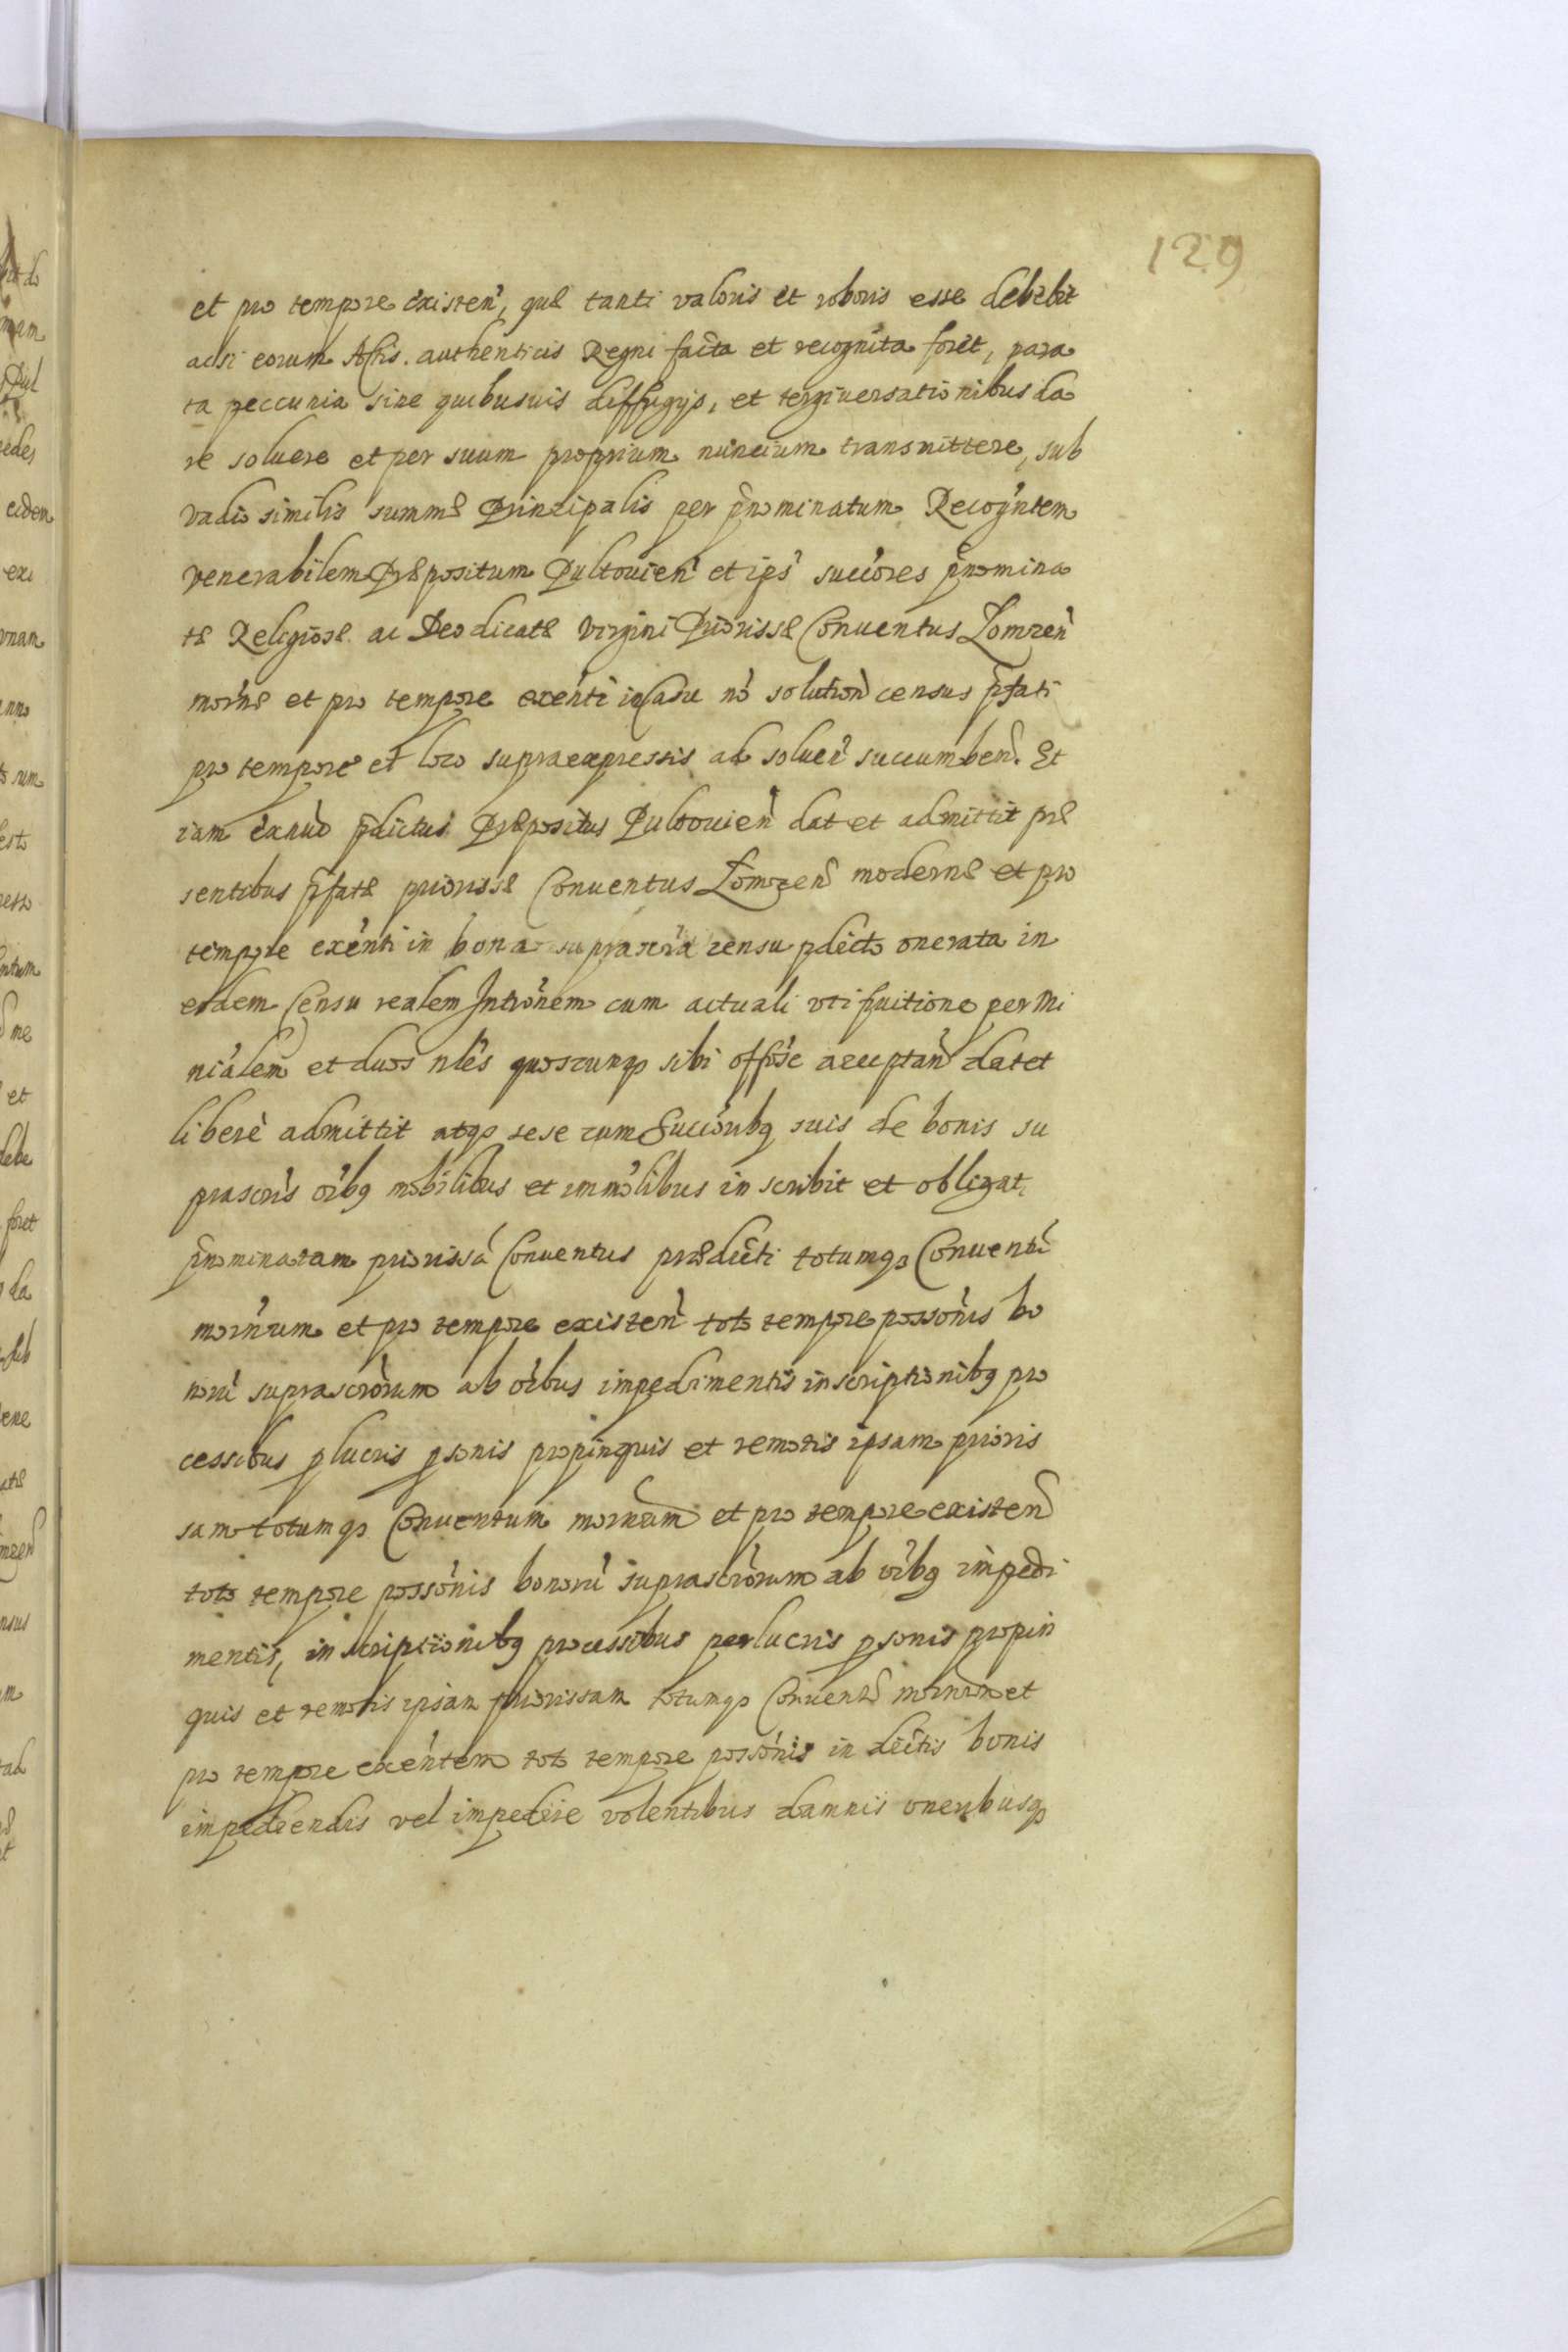 129
et pro tempore existen̄, quę tanti valoris et roboris esse debebit
acsi eorum Actis authenticis Regni facta et recognita foret, para
ta peccunia sine quibusuis diffugijs, et tergiuersationibus da
re soluere et per suum proprium nuncium transmittere, sub
vadio similis summę Principalis per p̄nominatum Recogn̄tem
venerabilem Prępositum Pultouien̄ et ip̄s succ̄ores p̄nomina
tę Religiosę ac Deo dicatę Virgini Priorissę Conuentus Lomzen̄
mōrnę et pro tempore exēnti in casu nō solution̄ census p̄fati
pro tempore et loco supraexpressis ad soluen̄ succumben̄. Et
iam exnūc p̄dictus Prępositus Pultouien̄ dat et admittit prę
sentibus p̄fatę priorissę Conuentus Lomzen̄ modernę et pro
tempore exēnti in bona suprascr̄ta censu p̄dicto onerata in
eodem Censu realem Intrōnem cum actuali vti fruitione per Mi
niālem et duos n̄les quoscunq̨ sibi off̄ose acceptan̄ dat et
liberè admittit atq̨ sese cum Succ̄oribq̨ suis de bonis su
prascr̄is ōibq̨ mobilibus et immōlibus inscribit et obligat
p̄nominatam priorissā Conuentus prędicti totumq̨ Conuentū
mōrnum et pro tempore existen̄ toto tempore possōnis bo
norū suprascr̄orum ab ōibus impedimentis inscriptionibq̨ pro
cessibus p̱lucris p̱sonis propinquis et remotis ipsam prioris
sam totumq̨ Conuentum mōrnum et pro tempore existen̄
toto tempore possōnis bonorū suprascr̄orum ab ōibq̨ impedi
mentis, inscriptionibq̨ processibus perlucris p̱sonis propin
quis et remotis ipsam priorissam totumq̨ Conuent̄ mōrnum et
pro tempore exēntem toto tempore possōnis in dictis bonis
impediendis vel impedire volentibus damnis oneribusq̨